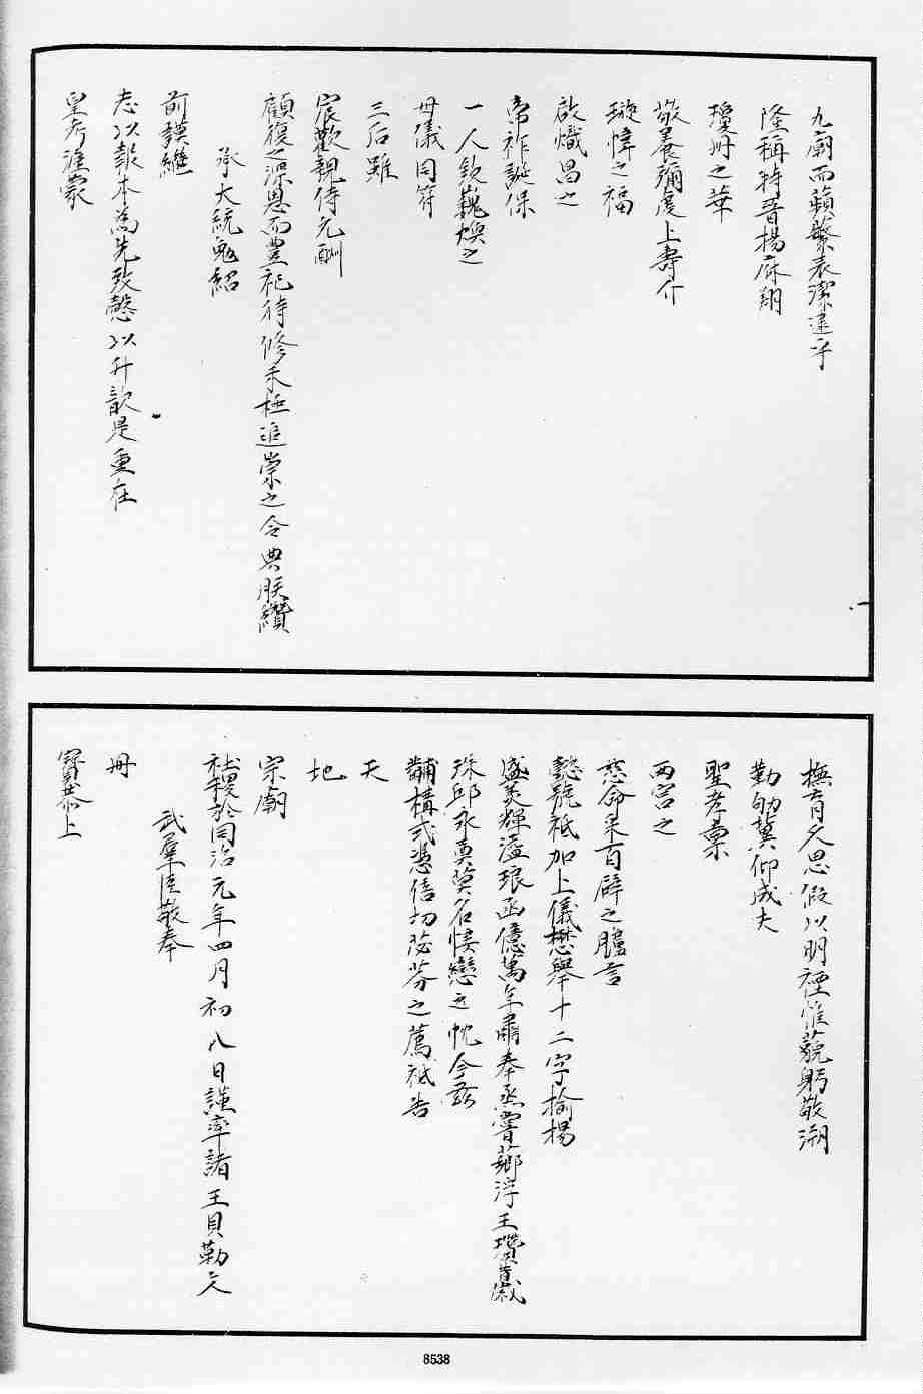 九廟而蘋蘩表潔逮乎
隆稱特晋揚庥翔
瓊册之華
敬養彌虔上壽介
璇幃之福
啟熾昌之
帝祚誕保
一人欽巍煥之
母儀同符
三后雖
宸歡親侍冗酬
顧復之深恩而豊祀待修未極追崇之令典朕纘
承大統寅紹
前謨繼
志以報本為先致慤以升歆是重在
皇考渥蒙
撫育久思假以明禋惟藐躬敬溯
勤劬冀仰成夫
聖孝稟
兩宮之
慈命采百辟之臚言
懿號祗加上儀懋舉十二字揄揚
盛美輝溢琅函億萬年肅奉烝嘗薌浮玉瓚歲
珠邱永奠莫名悽戀之忱今兹
黼構式憑倍切苾芬之薦祗告
天
地
宗廟
社稷於同治元年四月初八日謹率諸王貝勒文
武羣臣敬奉
冊
寶恭上
8538